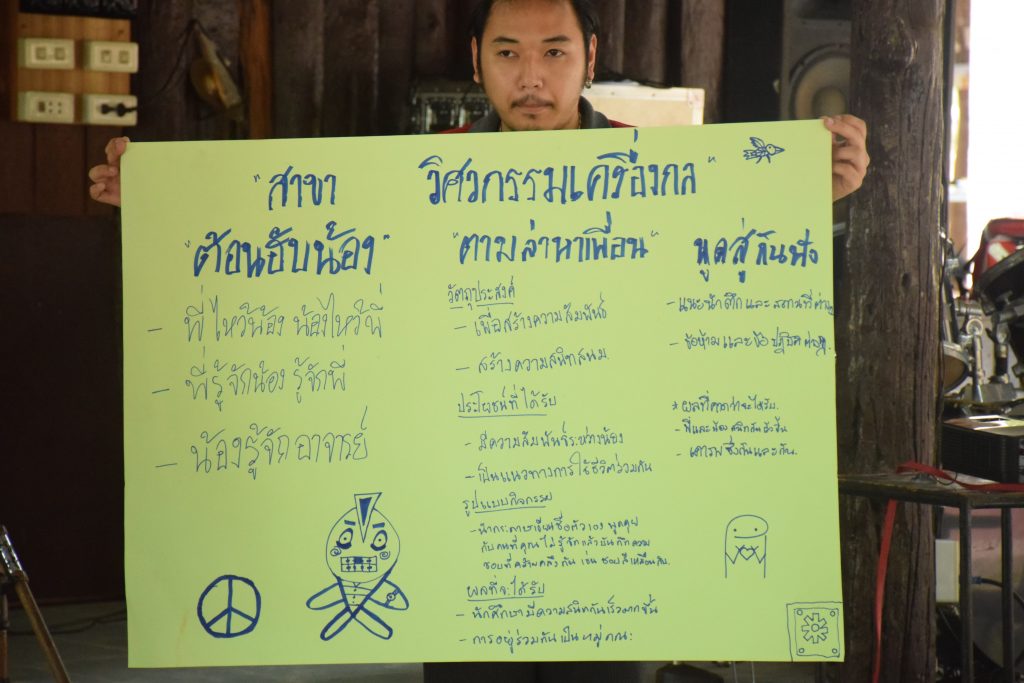 "สาขา วิศวกรรมเครื่องกล"
"ต้อนฮับน้อง"
- พี่ไหว้น้อง น้องไหว้พี่
- พี่รู้จักน้อง รู้จักพี่
- น้องรู้จักอาจารย์
"ตามล่าหาเพื่อน"
วัตถุประสงค์
- เพื่อสร้างความสัมพันธ์
- สร้างความสนิทสนม.
ประโยชน์ที่ได้รับ
- มีความสัมพันธ์ระหว่างน้อง
- เป็นแนวทางการใช้ชีวิตร่วมกัน
รูปแบบกิจกรรม
- นำกระดาษเขียนชื่อตัวเอง พูดคุย
กับคนที่คุณไม่รู้จักแล้วบันทึกความ
ชอบที่คล้ายคลึงกัน เช่น ชอบสีเหมือนกัน.
ผลที่จะได้รับ
- นักศึกษามีความสนิทกันเร็วมากขึ้น
- การอยู่ร่วมกันเป็นหมู่คณะ
พูดสู่กันฟัง
- แนะนำตึกและสถานที่ต่างๆ
- ข้อห้ามและข้อปฏิบัติต่างๆ.
* ผลที่คาดว่าจะได้รับ.
- พี่และน้องสนิทกันยิ่งขึ้น
- เคารพซึ่งกันและกัน.